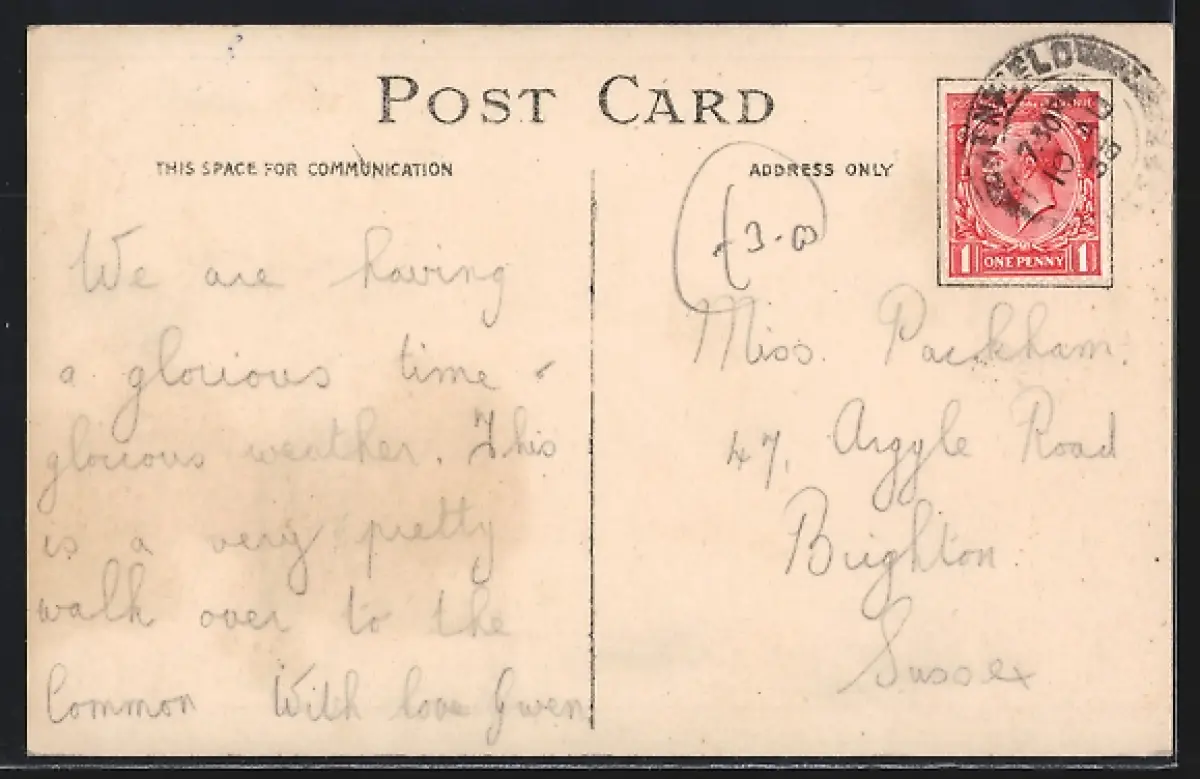 POST CARD
THIS SPACE FOR COMMUNICATION
ADDRESS ONLY
7.30 PM
10
33
1 ONE PENNY 1
3-0
We are having
a glorious time &
glorious weather. This
is a very pretty
walk over to the
Common With love Gwen
Miss. Packham.
47, Argyle Road
Brighton.
Sussex